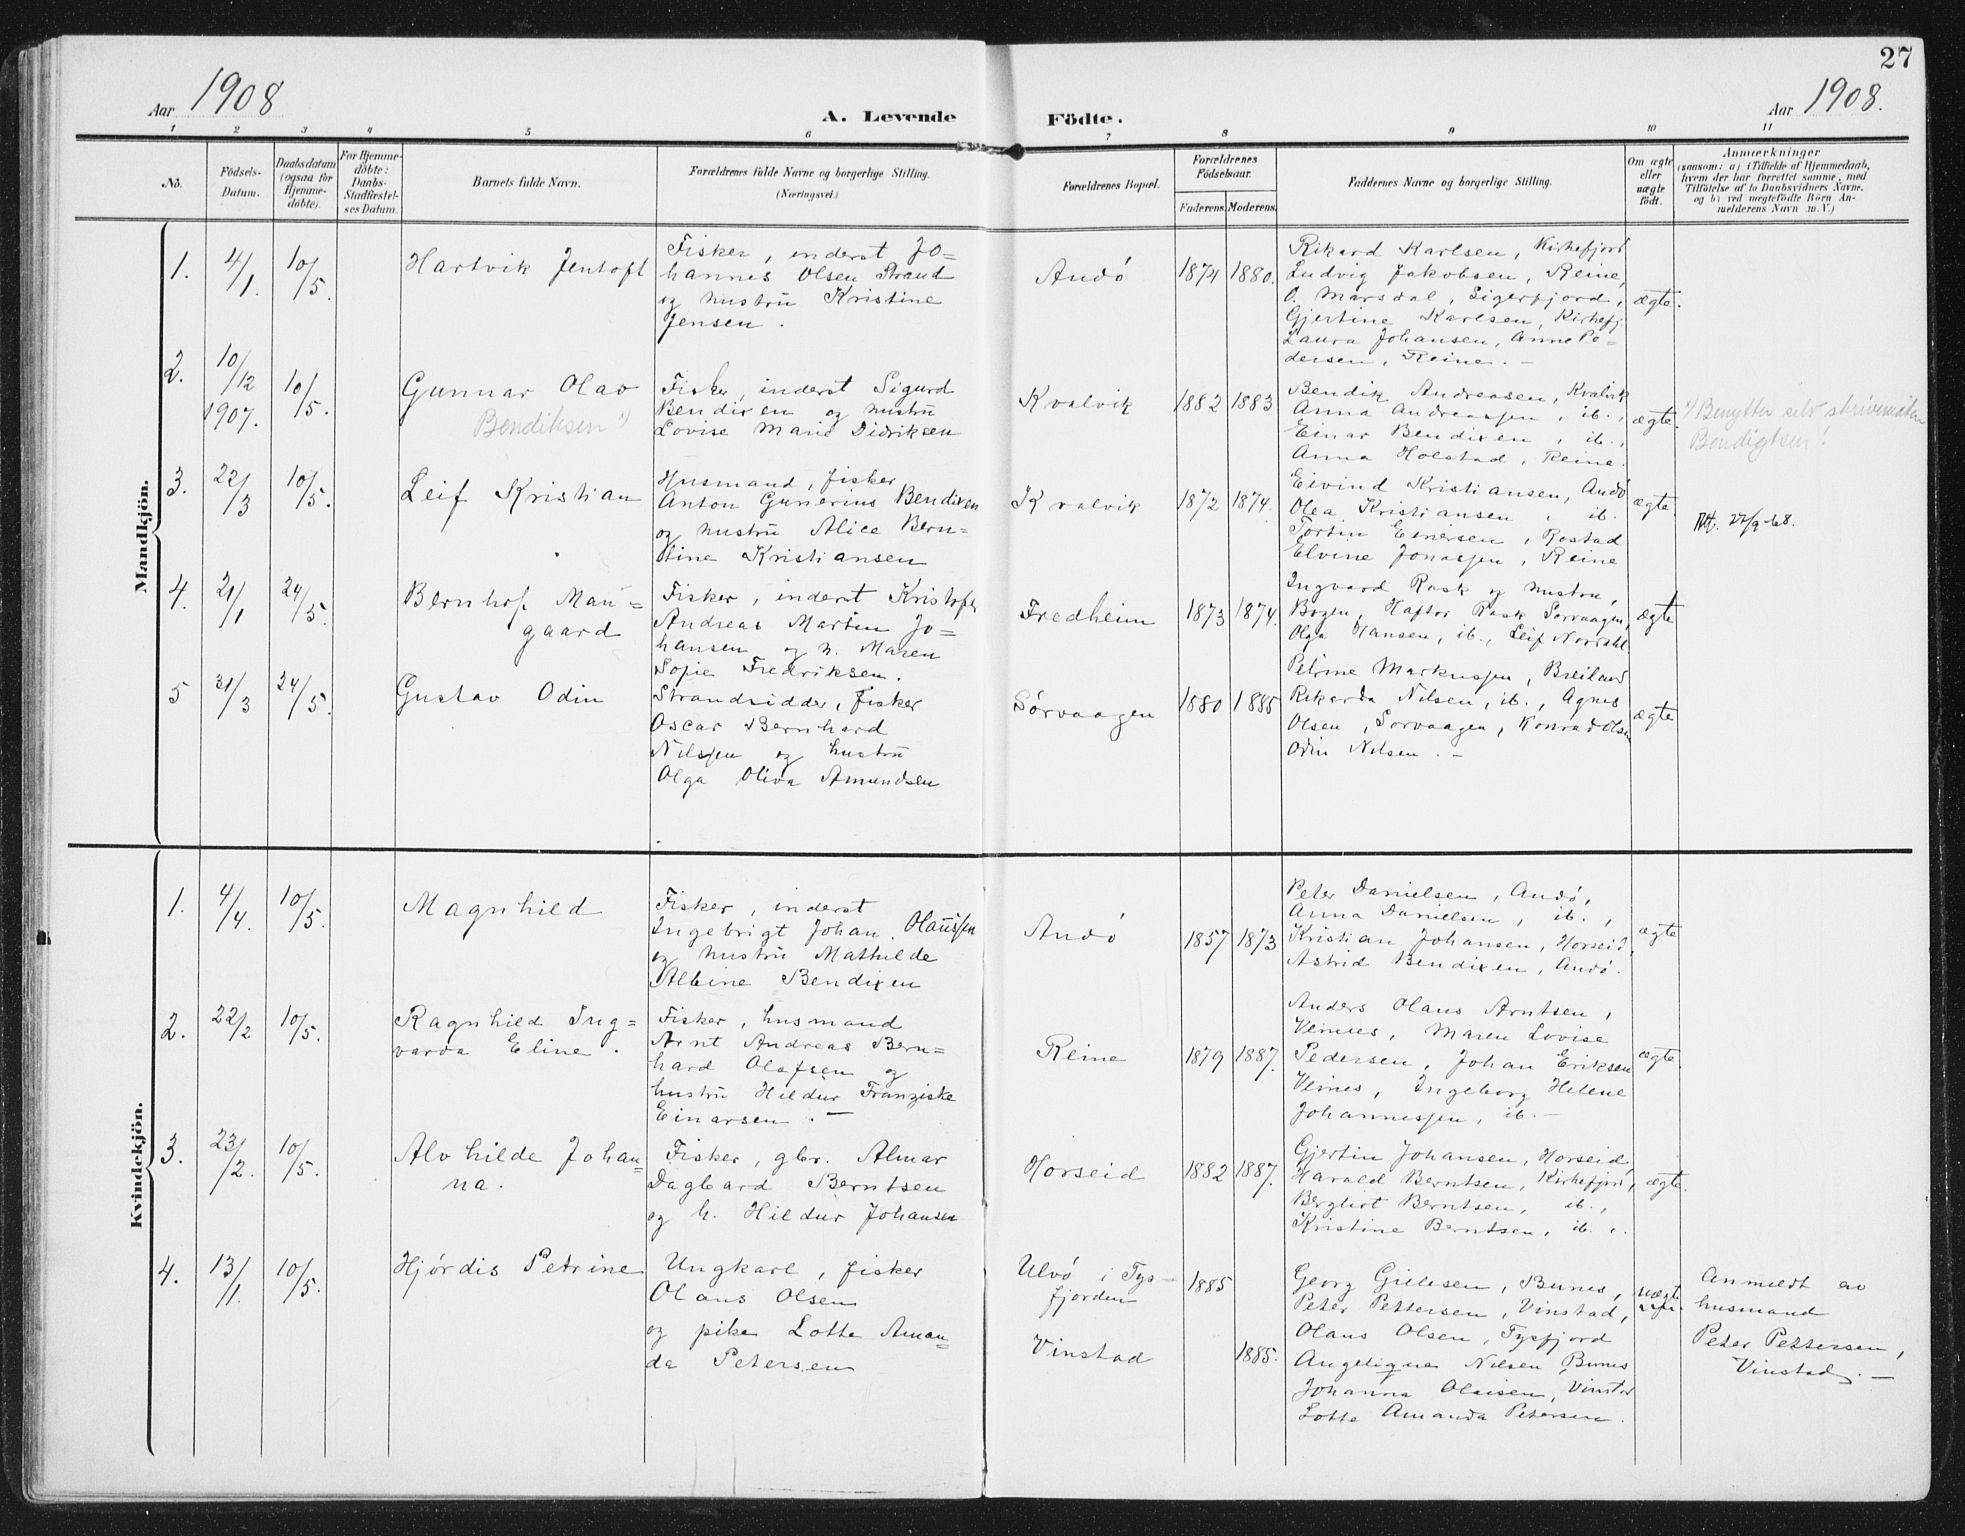 27
Aar 1908
A. Levende Födte.
Aar 1908.
1 2 3 4 5 6 7 8 9 10 11
No.
Födsels-
Datum.
Daabsdatum
(ogsaa for
Hjemme-
döbte).
For Hjemme-
döbte:
Daabs-
Stadfæstel-
ses Datum.
Barnets fulde Navn.
Forældrenes fulde Navne og borgerlige Stilling.
(Næringsvei.)
Forældrenes Bopæl.
Forældrenes
Födselsaar.
Faderens. Moderens.
Faddernes Navne og borgerlige Stilling.
Om ægte
eller
uægte
födt.
Anmærkninger
(saasom: a) i Tilfælde af Hjemmedaab,
hvem der har forrettet samme, med
Tilføielse af to Daabsvidners Navne.
og b) ved uægtefödte Börn An-
melderens Navn m. V.)
Mandkjön.
1.
4/1.
10/5.
Hartvik Jentoft
Fisker, inderst Jo-
hannes Olsen Strand
og hustru Kristine
Jensen.
Andö
1874
1880.
Rikard Karlsen, Kirkefjord
Ludvig Jakobsen, Reine,
O. Marsdal, Sigerfjord,
Gjertine Karlsen, Kirkefj.
Laura Johansen, Anne Pe-
dersen, Reine. -
ægte.
2.
10/12
1907.
10/5.
Gunnar Olav
Bendiksen 1)
Fisker, inderst Sigurd
Bendixen og hustru
Lovise Marie Didriksen
Kvalvik
1882
1883
Bendik Andreasen, Kvalvik
Anna Andreassen, ib.,
Einar Bendixen, ib.,
Anna Holstad, Reine.
ægte.
1) Benytter selv skrivemåten
Bendigtsen!
3.
22/3
10/5.
Leif Kristian
Husmand, fisker
Anton Gunerius Bendixen
og hustru Alice Bern-
tine Kristiansen
Kvalvik
1872
1874.
Eivind Kristiansen, Andö
Olea Kristiansen, ib.
Tortin Einersen, Rostad
Elvine Jonassen, Reine
ægte.
Att. 27/9-68.
4.
21/1
24/5.
Bernhof Mau-
gaard
Fisker, inderst Kristofer
Andreas Martin Jo-
hansen og h. Maren
Sofie Fredriksen.
Fredheim
1873
1874.
Ingvard Rask og hustru,
Bogen, Haftor Rask Sorvaagen,
Olga Hansen, ib., Leif Nordahl
ægte
5
31/3
24/5.
Gustav Odin
Strandsidder, fisker
Oscar Bernhard
Nilssen og hustru
Olga Oliva Amundsen
Sörvaagen
1880
1885
Petrine Markussen, Breiland
Rikarda Nilsen, ib., Agnes
Olsen, Sorvaagen, Konrad Olsen
Odin Nilsen. -
ægte
Kvindekjön.
1.
4/4.
10/5.
Magnhild
Fisker, inderst
Ingebrigt Johan Olaussen
og hustru Mathilde
Albine Bendixen
Andö
1857
1873
Peter Danielsen, Andö,
Anna Danielsen, ib.,
Kristian Johansen, Horseid,
Astrid Bendixen, Andö.
ægte
2.
22/2
10/5.
Ragnhild Ing-
varda Eline.
Fisker, husmand
Arnt Andreas Bern-
hard Olafsen og
hustru Hildur Franziske
Einarsen. -
Reine
1879
1887.
Anders Olaus Arntsen,
Veines, Maren Lovise
Pedersen, Johan Eriksen
Veines, Ingeborg Helene
Johannessen, ib. -
ægte.
3.
23/2.
10/5.
Alvhilde Johan-
na.
Fisker, gbr. Almar
Dagbard Berntsen
og h. Hildur Johansen
Horseid
1882
1887.
Gjertin Johansen, Horseid,
Harald Berntsen, Kirkefjord,
Bergliot Berntsen, ib.,
Kristine Berntsen, ib..
ægte.
4.
13/1.
10/5.
Hjördis Petrine
Ungkarl, fisker
Olaus Olsen
og pike Lotte Aman-
da Petersen
Ulvö i Tys-
fjorden
Vinstad
1885
1885.
Georg Gielesen, Bunes,
Peter Pettersen, Vinstad,
Olaus Olsen, Tysfjord
Angelique Nilsen, Bunes
Johanna Olaisen, Vinstad
Lotte Amanda Petersen.
uægte
Anmeldt av
husmand
Peter Pettersen,
Vinstad. -